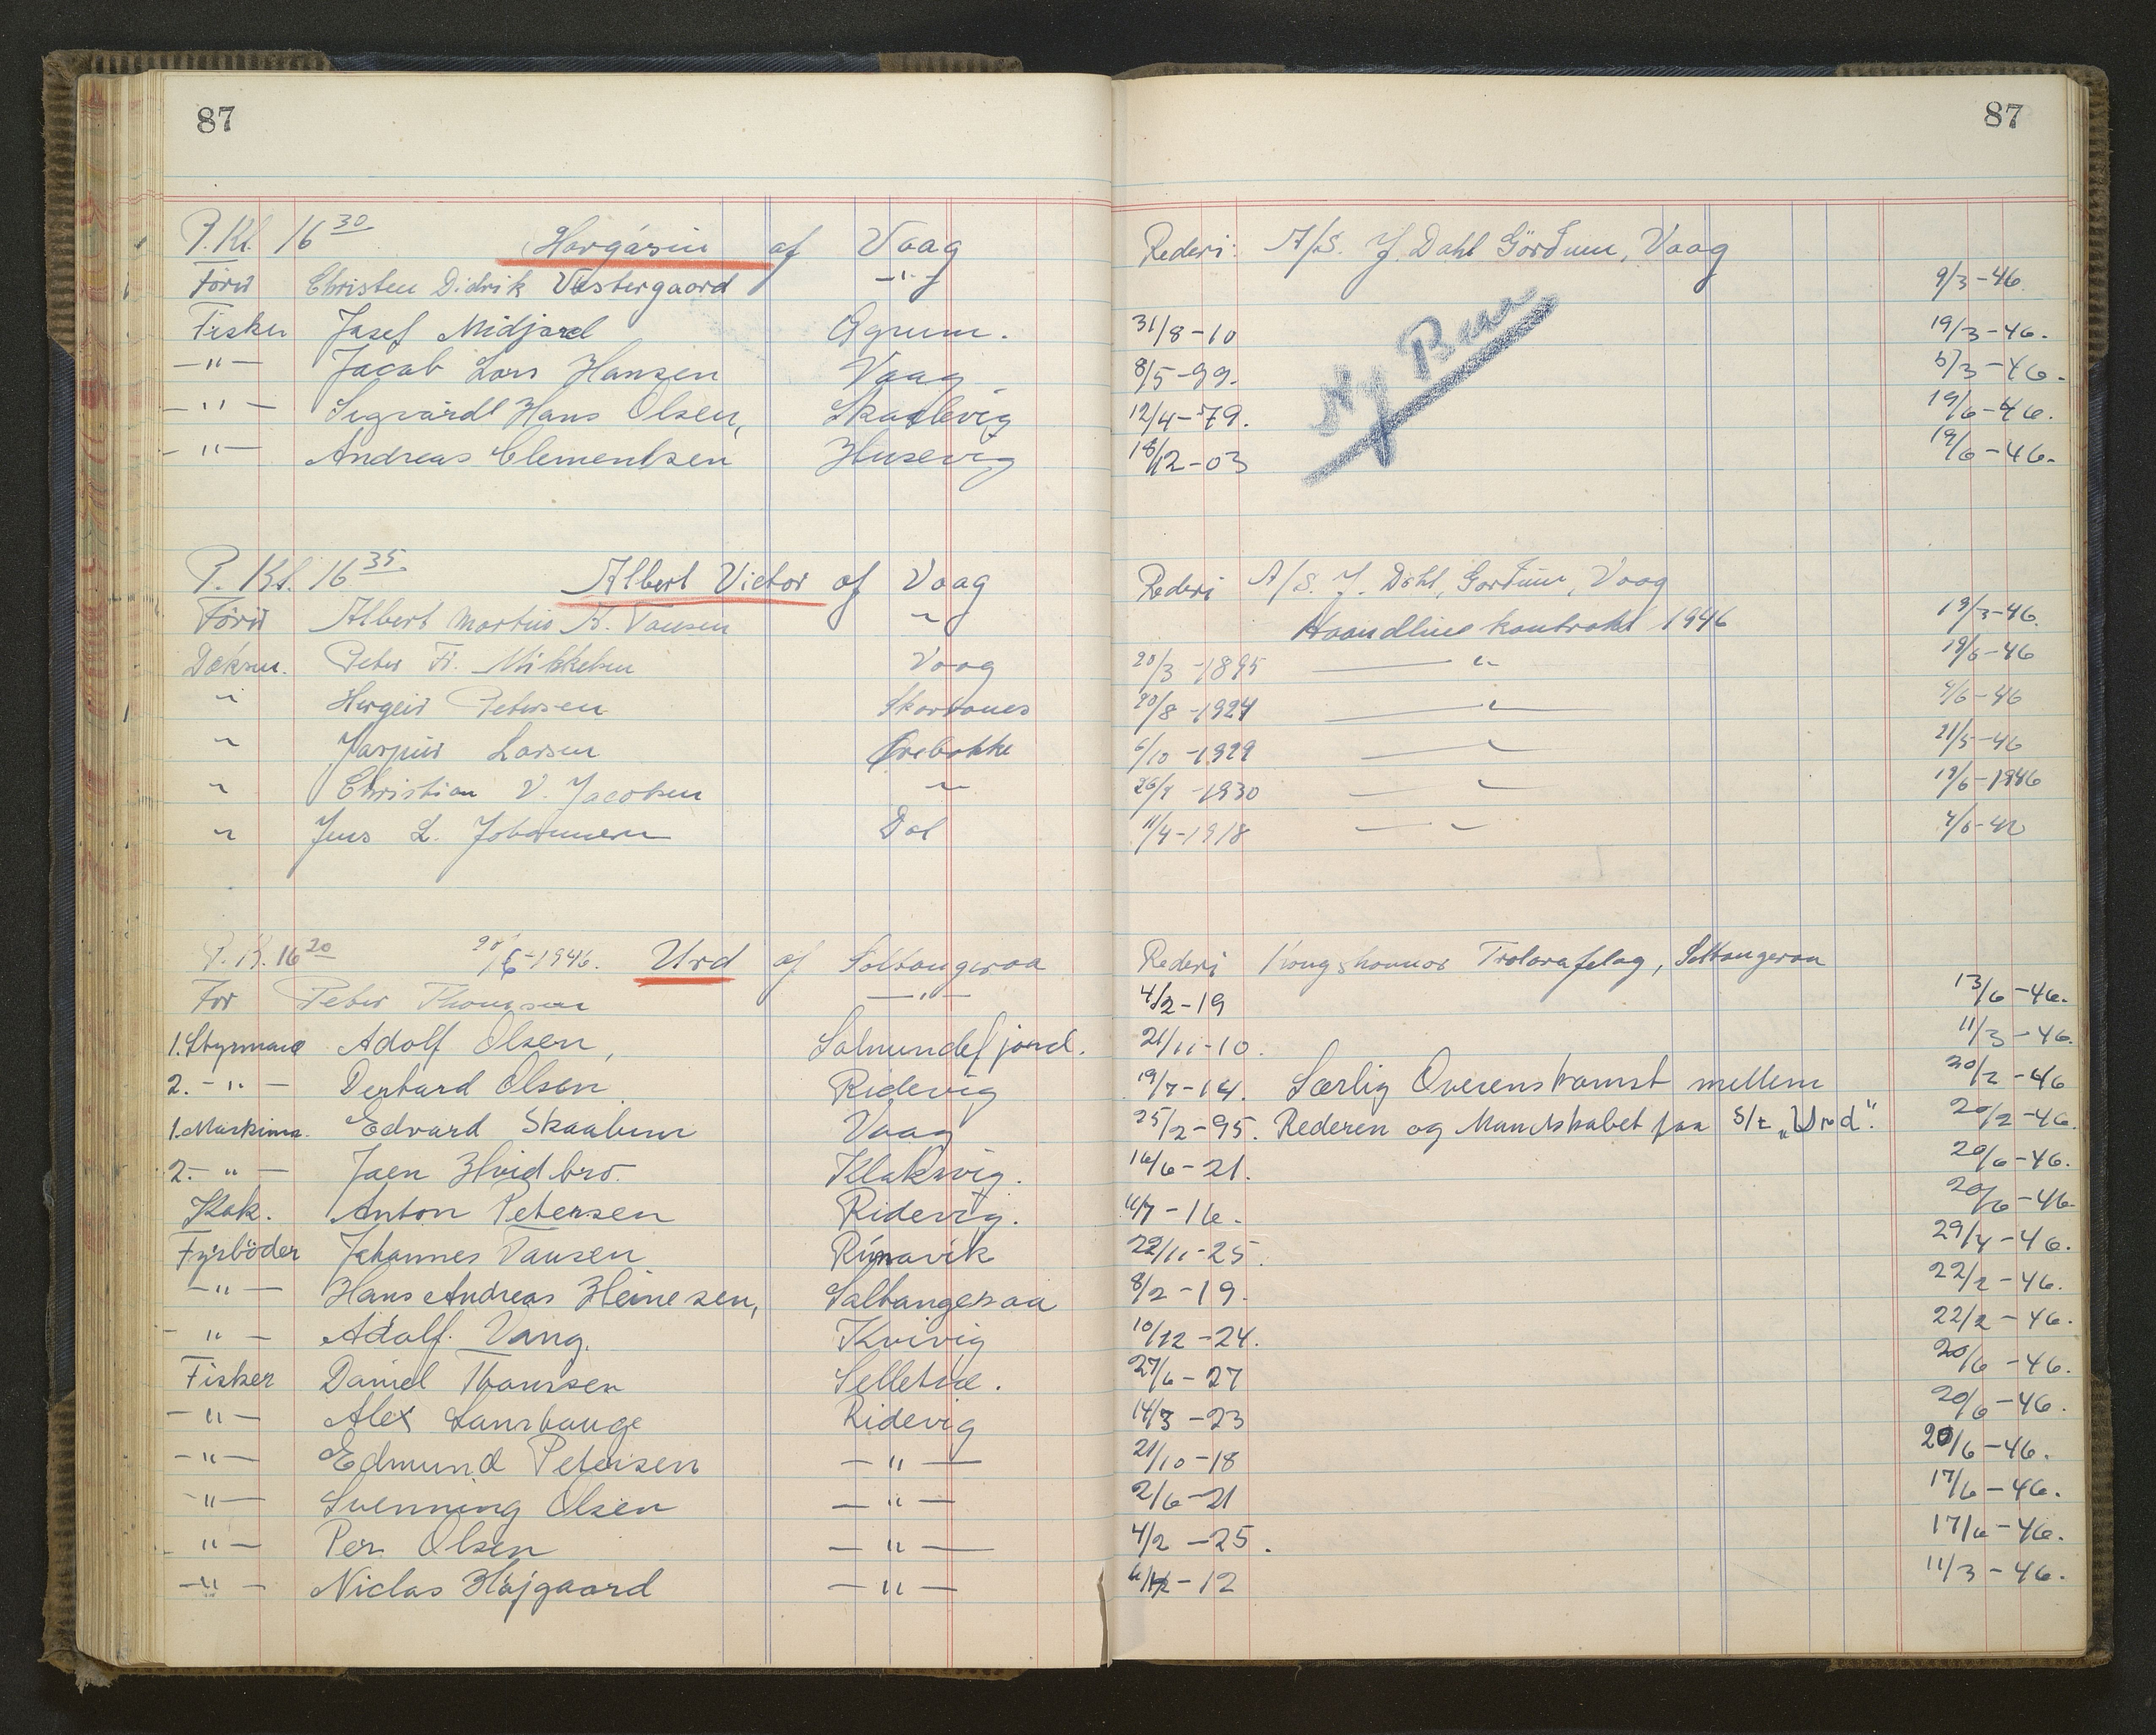 87
87
P. Kl. 16 30 Havgásin af Vaag Rederi: A/S. J. Dahl Gördum, Vaag
Förer Christen Didrik Vestergaard —"— 9/3-46.
Fisker Josef Midjord Øgrum. 31/8-10 19/3-46.
—"— Jacob Lars Hansen Vaag 8/5-99. 5/3-46.
—"— Sigvardt Hans Olsen, Skaalevig 12/4-79. 19/6-46.
—"— Andreas Clementsen Husevig 18/12-03 19/6-46.
Ny Bas
P. Kl. 16 35 Albert Victor af Vaag Rederi A/S. J. Dahl, Gordum, Vaag
Förer Albert Martus K. Vousen " Haandline kontrakt 1946 19/3-46.
Dæksm. Peter Fr. Mikkelsen Vaag 20/3-1895 —"— 19/6-46
" Hergeir Petersen 20/8-1924 —"— 4/6-46
" Jaspur Larsen Ørebakke 6/10-1929 —"— 21/5-46
" Christian V. Jacobsen " 26/4-1930 —"— 19/6-1946
" Jens L. Johannesen Dal 11/4-1918 —"—
P. K. 16 20 20/6-1946. Urd af Soltangeraa Rederi Kongshavnar Trolarafelag, Saltangeraa
För Peter Thomsen —"— 4/2-19 13/6-46.
1. Styrmand Adolf Olsen, Salmundefjord. 21/11-10. 11/3-46.
2. —"— Olsen Ridevig 19/7-14. Særlig Overenskomst mellem 20/2-46
1. Maskinm. Edvard Skaalum Vaag 25/2-95. Rederen og Mandskabet paa S/t "Urd". 20/2-46.
2. —"— Joen Hvidbro. Klaksvig. 16/6-21. 20/6-46.
Kok. Anton Petersen Ridevig. 6/7-16. 20/6-46
Fyrböder Johannes Vousen Runavik 22/11-25. 29/4-46.
—"— Hans Andreas Heinesen, Saltangeraa 8/2-19. 22/2-46.
—"— Adolf. Vang. Kvivig 10/12-24. 22/2-46.
Fisker Daniel Thomsen Selletræ. 27/6-27 20/6-46.
—"— Alex Ridevig 14/3-23 20/6-46.
—"— Edmund Petersen —"— 21/10-18 20/6-46.
—"— Svenning Olsen —"— 2/6-21 17/6-46.
—"— Per Olsen —"— 4/2-25. 17/6-46.
—"— Niclas Højgaard —"— 11/3-46.